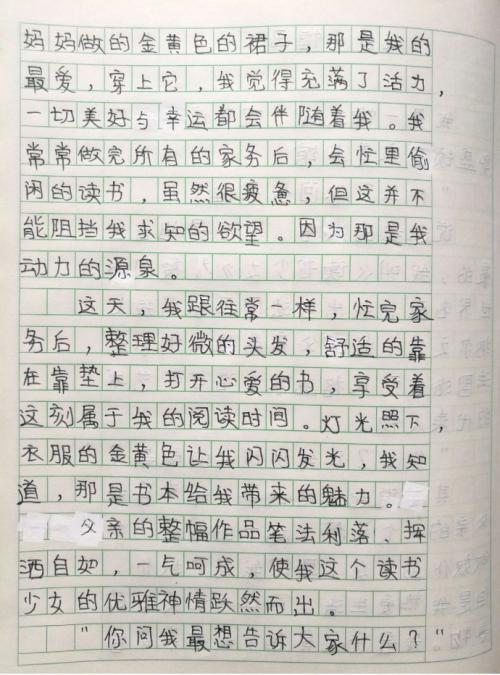 妈妈做的金黄色的裙子，那是我的
最爱，穿上它，我觉得充满了活力，
一切美好与幸运都会伴随着我。我
常常做完所有的家务后，会忙里偷
闲的读书，虽然很疲惫，但这并不
能阻挡我求知的欲望。因为那是我
动力的源泉。
这天，我跟往常一样，忙完家
务后，整理好微的头发，舒适的靠
在靠垫上，打开心爱的书，享受着
这刻属于我的阅读时间。灯光照下，
衣服的金黄色让我闪闪发光，我知
道，那是书本给我带来的魅力。
父亲的整幅作品笔法利落、挥
洒自如，一气呵成，使我这个读书
少女的优雅神情跃然而出。
"你问我最想告诉大家什么？"